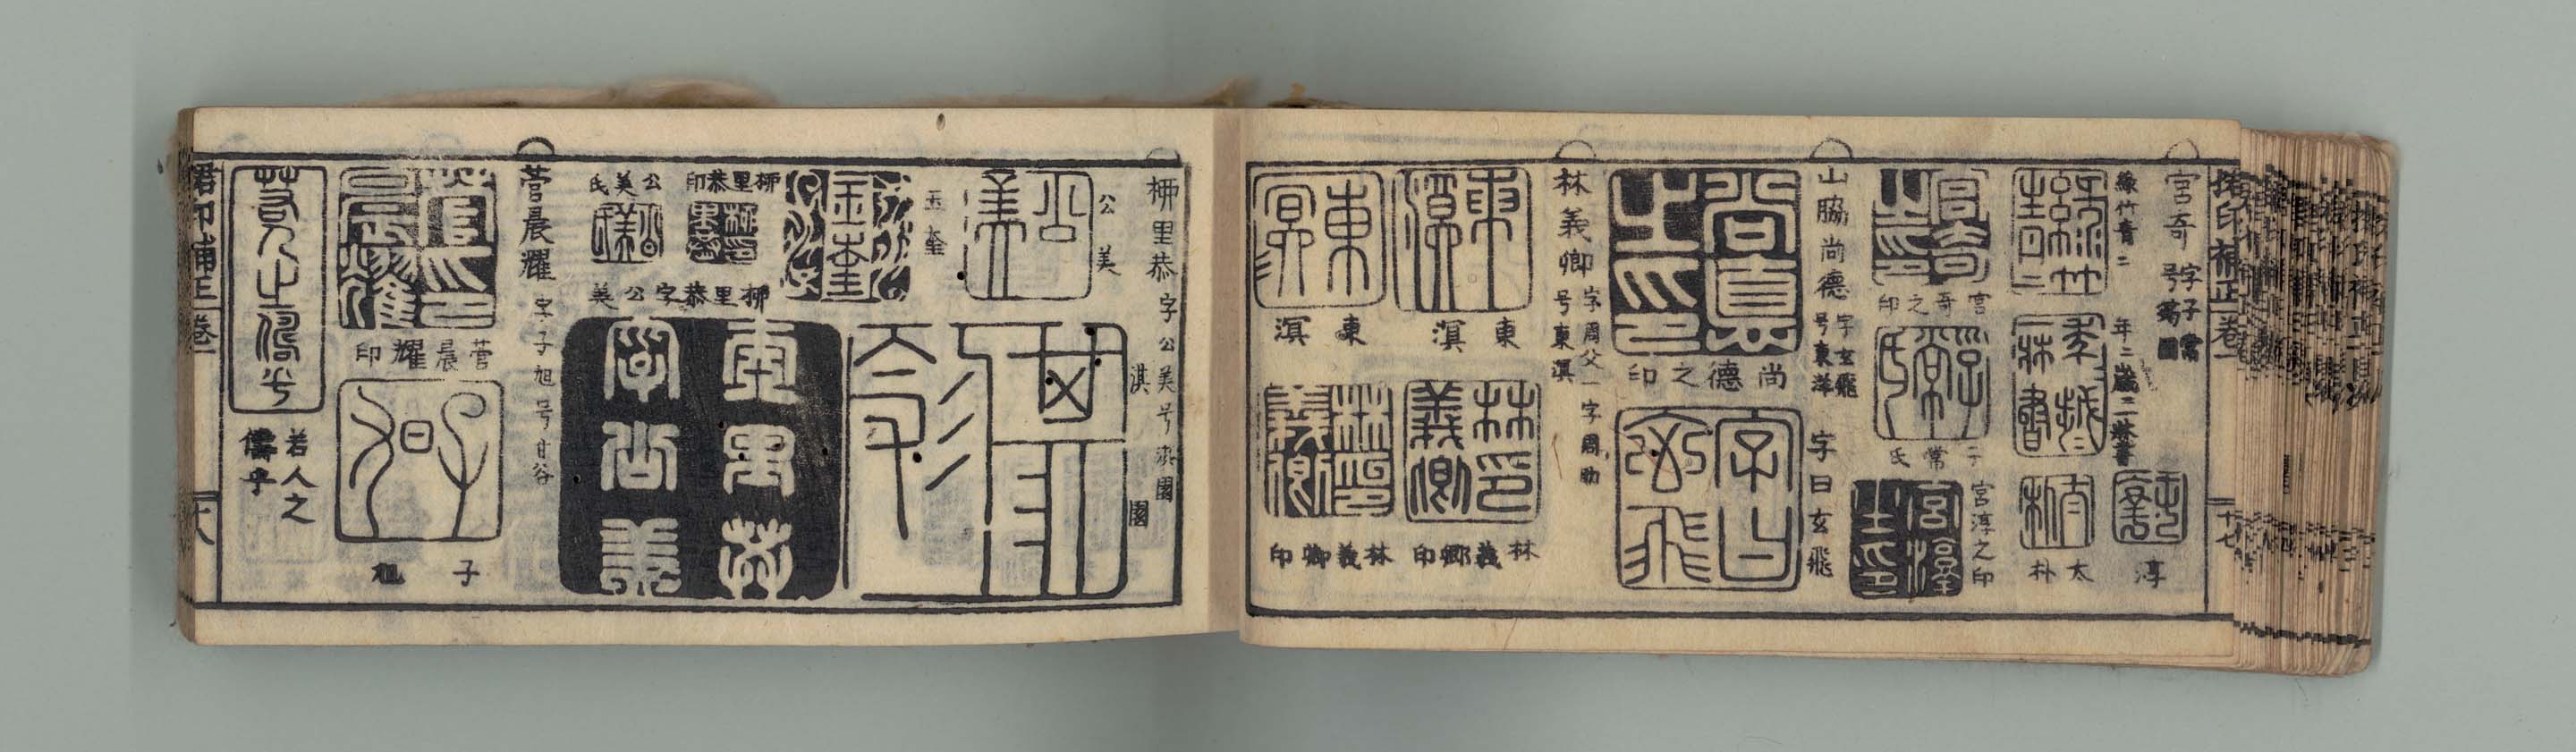 宮奇
字子常
号筠圃
緑竹青二
年二歳二 㽵書
淳
太朴
宮奇之印
子常氏
宮淳之印
山脇尚德
字玄飛
号東洋
尚德之印
字曰玄飛
林義卿
字周父一字周助
号東溟
東溟
林義卿印
東溟
林義卿印
補正卷一
十七
柳里恭
字公美号淇園
公美
淇園
玉奎
柳里恭印
公美氏
柳里恭字公美
菅晨耀
字子旭号甘谷
菅晨耀印
子旭
若人之儔乎
印補正卷一
十八